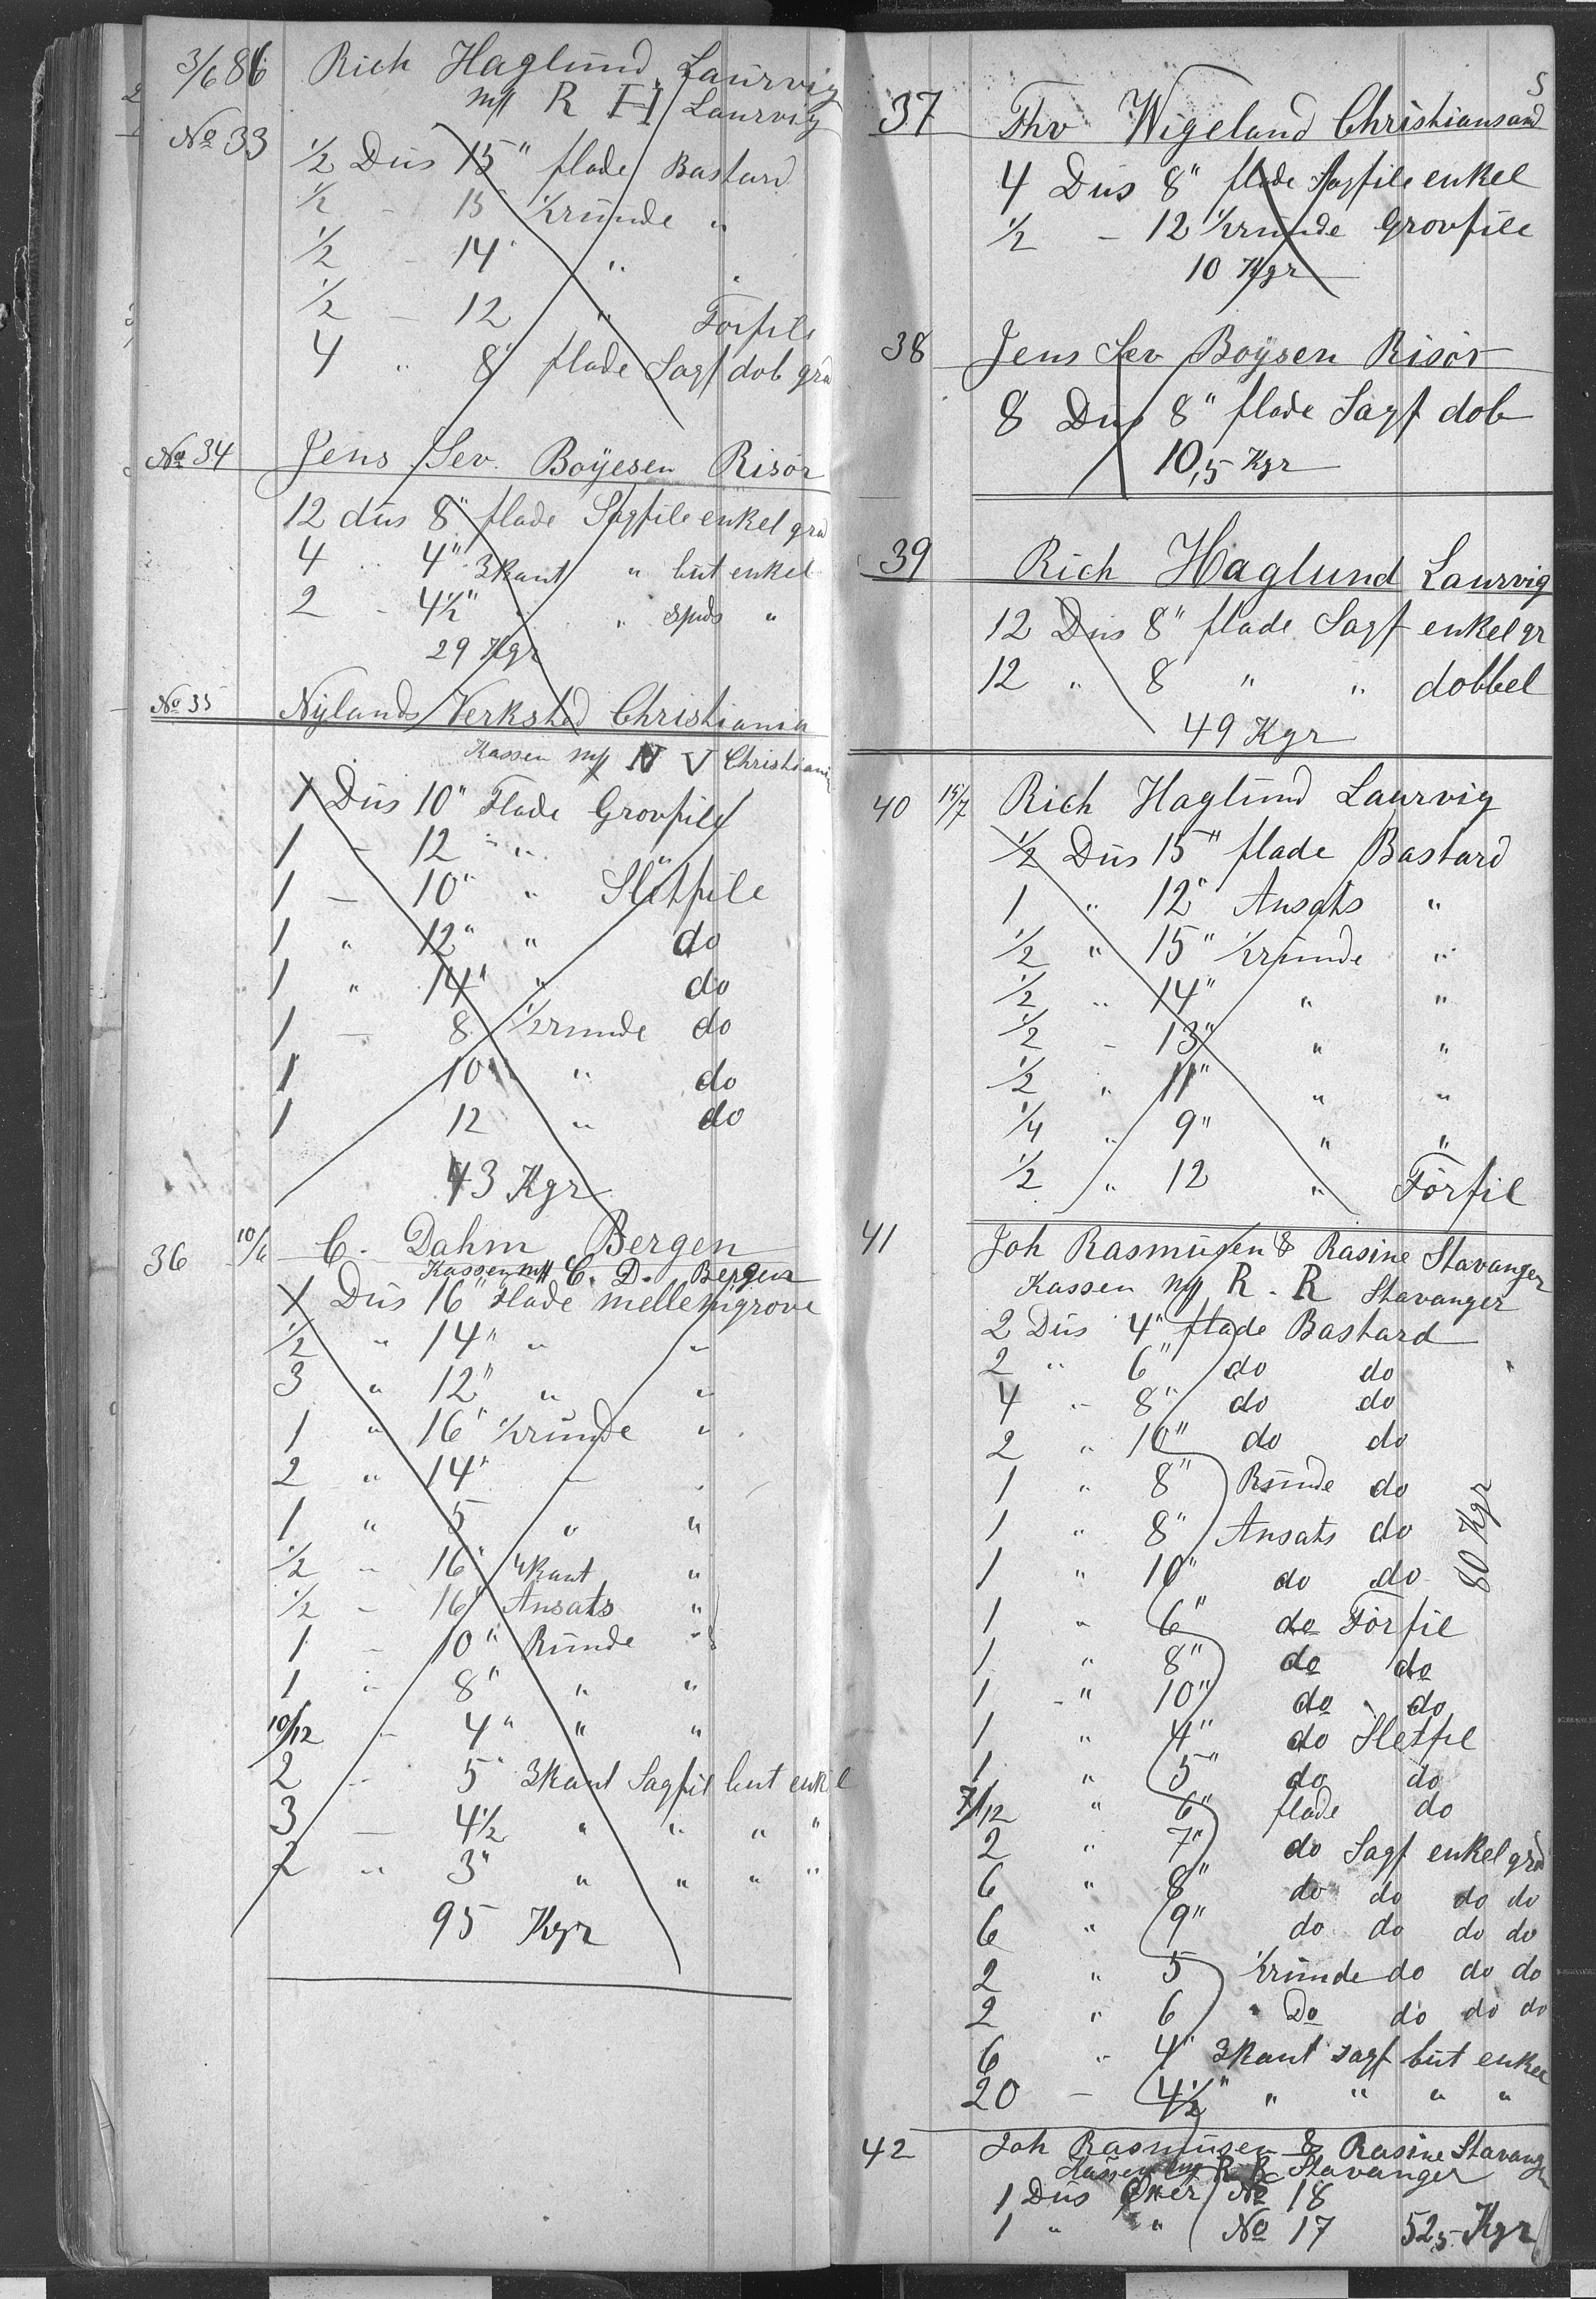 3/6 86 Rich Haglund Laurvig
m/ R H Laurvig
No 33
1/2 Dus 15" flade Bastard
1/2 - 15 1/2runde "
1/2 - 14" " "
1/2 - 12 " Forfile
4 " 8" flade Sagf dob grd
No 34 Jens Sev. Boyesen Risör
12 dus 8" flade Sagfile enkel grd
4 " 4" 3kant " but enkel
2 - 4 1/2" " " spids "
29 Kgr
No 35 Nylands Verksted Christiania
Kassen m/ N V Christiania
1 Dus 10" Flade Grovfile
1 - 12 " "
1 - 10" " Sletfile
1 " 12" " do
1 " 14" " do
1 - 8 1/2runde do
1 10" " do
1 12 " do
43 Kgr
36 10/6 C. Dahm Bergen
Kassen m/ C. D. Bergen
1 Dus 16" Flade mellemgrove
1/2 " 14" " "
3 " 12" " "
1 " 16" 1/2runde "
2 " 14" - "
1 " 5 " "
1/2 - 16" 4kant "
1/2 - 16" Ansats "
1 - 10" Runde "
1 " 8" " "
10/12 - 4" " "
2 - 5" 3kant Sagfil but enkel
3 - 4 1/2 " " " "
2 " 3" " " " "
95 Kgr
5
37 Thv Wigeland Christiansand
4 Dus 8" flade Sagfile enkel
1/2 - 12 1/2runde Grovfile
10 Kgr
38 Jens Sev Boysen Risör
8 Dus 8" flade Sagf dob
10,5 Kgr
39 Rich Haglund Laurvig
12 Dus 8" flade Sagf enkel gr
12 " 8 " " dobbel
49 Kgr
40 15/7 Rich Haglund Laurvig
1/2 Dus 15" flade Bastard
1 " 12" Ansats "
1/2 " 15" 1/2runde "
1/2 " 14" " "
1/2 - 13" " "
1/2 " 11" " "
1/4 " 9" " "
1/2 " 12 " Förfil
41 Joh Rasmusen & Rasine Stavanger
Kassen m/ R. R Stavanger
2 Dus 4" flade Bastard
2 " 6" do do
4 " 8" do do
2 " 10" do do
1 " 8" Runde do
1 " 8" Ansats do
1 " 10" do do
80 Kgr
1 " 6" do Förfil
1 " 8" do do
1 " 10" do do
1 " 4" do Sletfil
1 " 5" do do
7/12 " 6" flade do
2 " 7" do Sagf enkel grd
6 " 8" do do do do
6 " 9" do do do do
2 " 5 1/2runde do do do
2 " 6 " Do do do do
6 " 4" 3kant sagf but enkel
20 - 4 1/2" " " " "
42 Joh Rasmusen & Rasine Stavanger
Kassen R R Stavanger
1 Dus Öxer No 18
1 " " No 17 52,5 Kgr